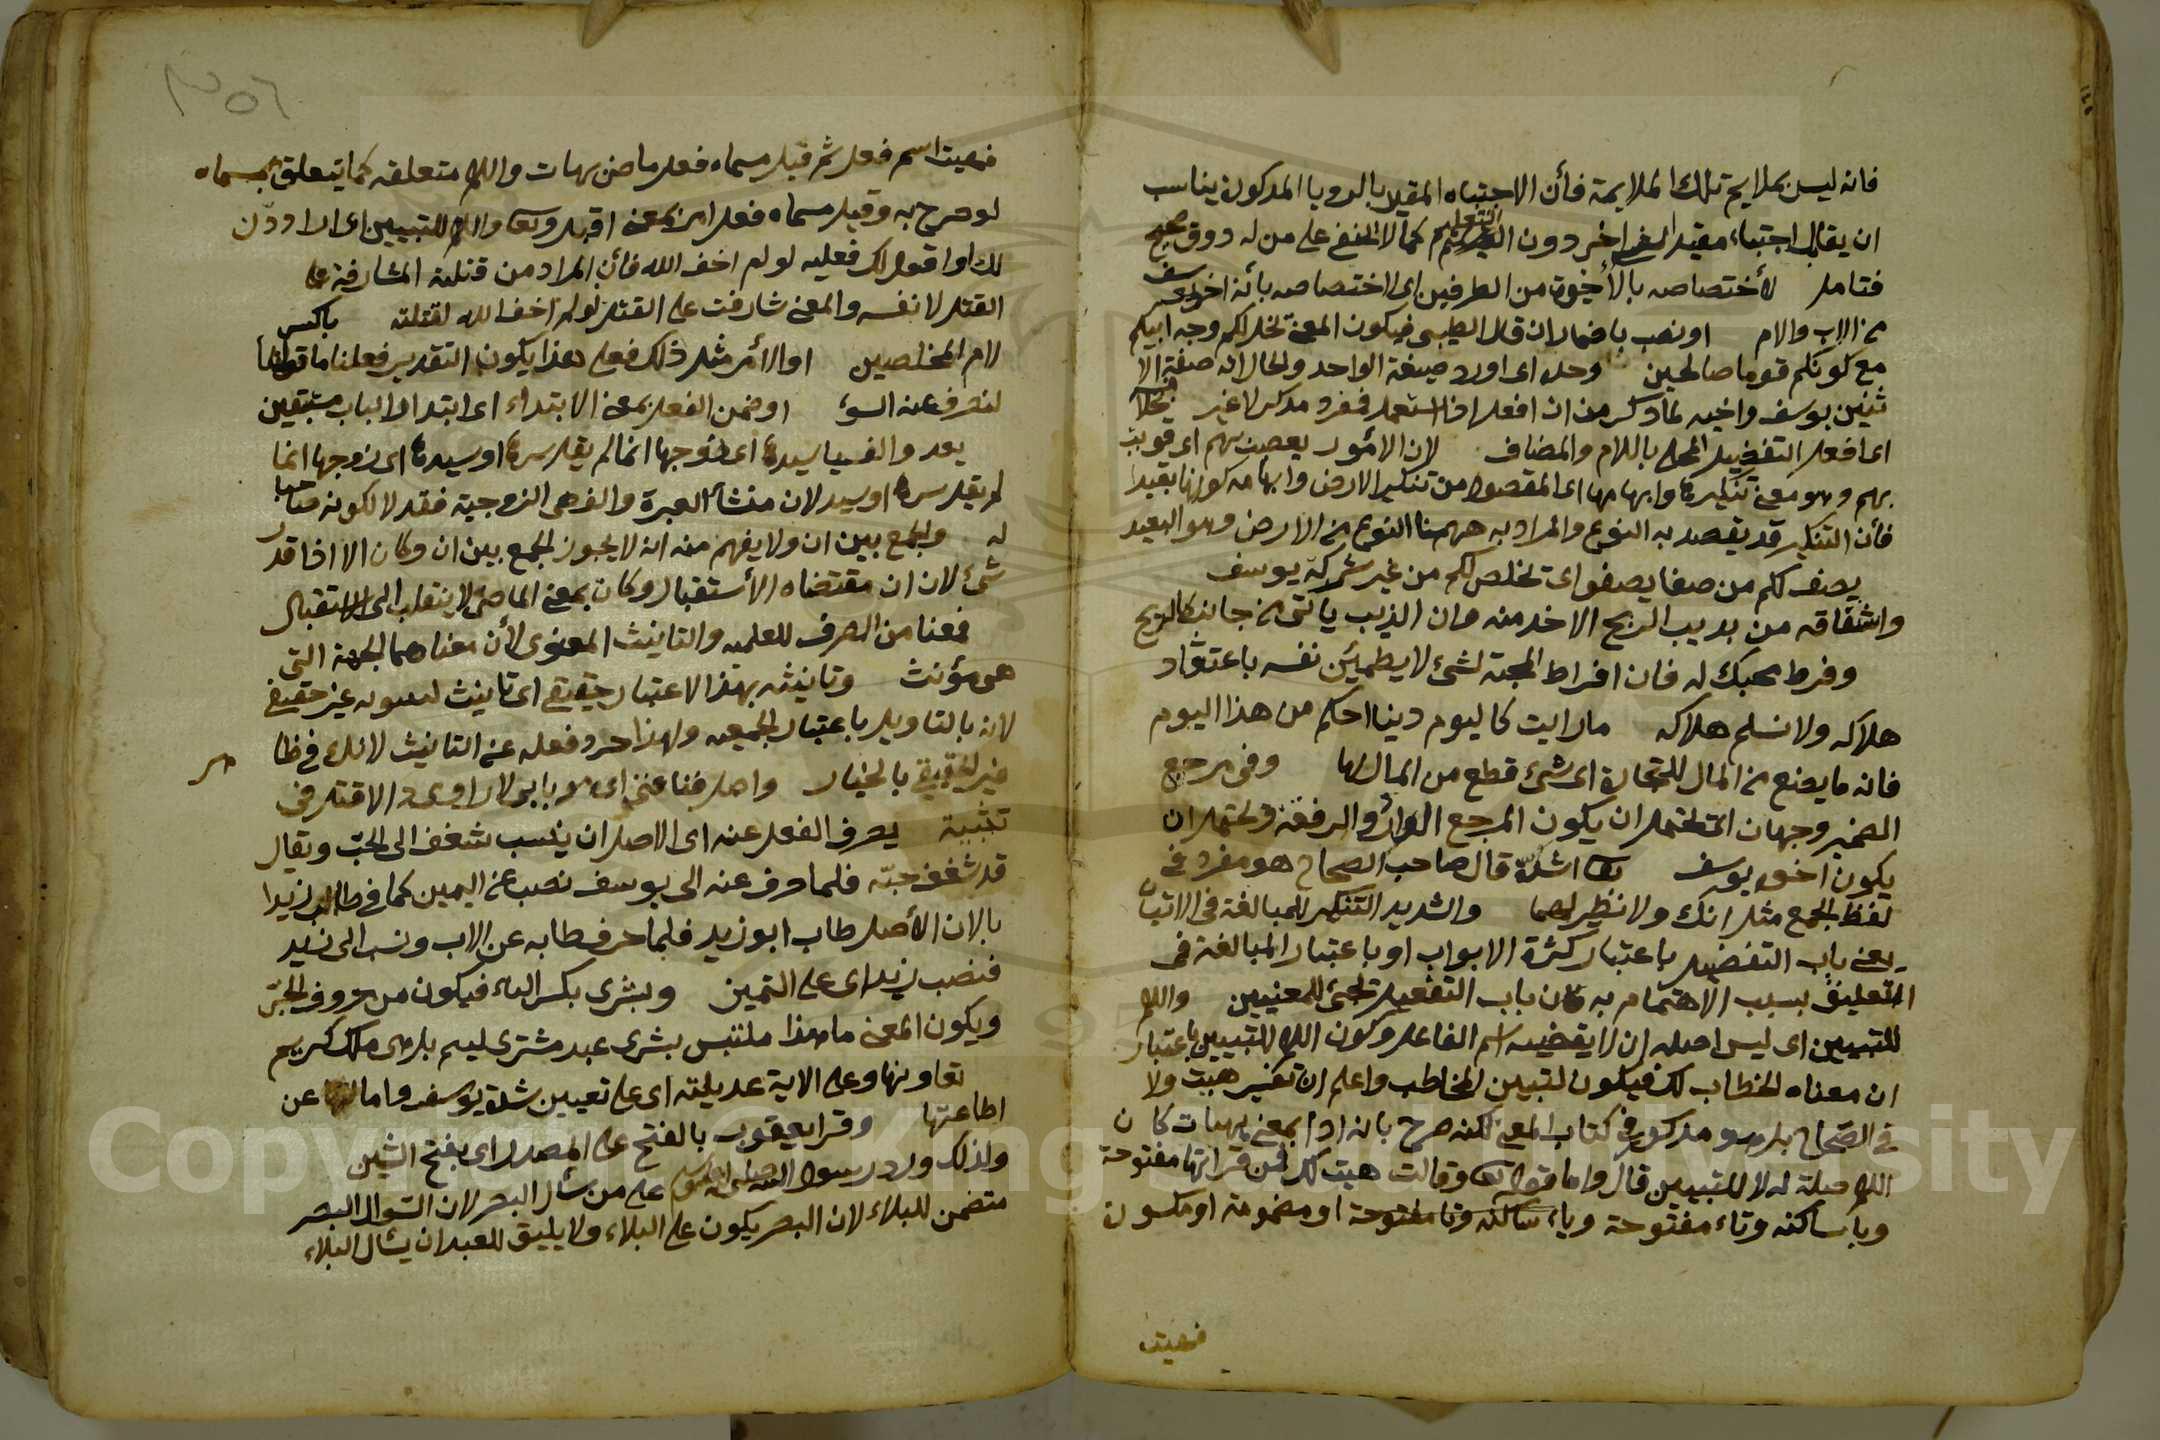 فانه ليس بملايم تلك الملايمة فأن الاجتباه المقيد بالرويا المذكور يناسب
ان يقال اجتباء مقيد اخر دون التعليم كما لا يخفى على من له ذوق صحيح
فتامل لأختصاصه بالأخوة من الطرفين اى لاختصاصه بأنه اخو يوسف
من الاب والام او نصب باضمار ان قال الطيبى فيكون المعنى يخل لكم وجه ابيكم
مع كونكم قوما صالحين وحده اى اورد صيغة الواحد والحال انه صفة الا
ثنين يوسف واخيه لما ذكر من ان افعل اذا استعمل فمفرد مذكر لا غير بخلا
اى افعل التفضيل المحلى باللام والمضاف لان الامور بعصبتهم اى قويت
بهم وهو معنى تنكيرها وابهامها اى المقصود من تنكير الارض وابهامه كونها بعيدا
فأن التنكير قد يقصد به النوع والمراد به ههنا النوع من الارض وهو البعيد
يصف لكم من صفا يصفو اى يخلص لكم من غير شركة يوسف
واشتقاقه من بديب الريح الاخذ منه فان الذيب ياتى من جانب كالريح
وفرط محبتك له فان افراط المحبة لشئ لا يطمئن نفسه باعتقاد
هلاكه ولا نسلم هلاكه ما رايت كاليوم دينا احكم من هذا اليوم
فانه ما يصنع من المال للتجارة اى شئ قطع من المال لها وفى مرجع
الضمير وجهان اى يحتمل ان يكون المرجع الوارد والرفقة ويحتمل ان
يكون اخو يوسف اشده قال صاحب الصحاح هو مفرد فى
لفظ الجمع مثل انك ولا نظير لهما والتشديد للتكثير المبالغة فى الاتيان
يعنى باب التفضيل باعتبار كثرة الابواب او باعتبار المبالغة فى
التعليق بسبب الاهتمام به فان باب التفعيل يجئ للمعنيين واللام
للتبيين اى ليس اصله ان لا يقضيه اسم الفاعل وكون اللام للتبيين باعتبار
ان معناه الخطاب لك فيكون لتبيين المخاطب واعلم ان تفسير هيت ولا
فى الصحاح بل هو مذكور فى كتاب المغنى لكنه صرح بانه اذا بمعنى تهيات كان
اللام صلة له لا للتبيين قال واما قوله وقالت هيت لك فمن قراتها مفتوحة
ويا ساكنه وتاء مفتوحة وياء ساكنه وتا مفتوحة او مضمومة او مكسورة
فهيت
فهيت اسم فعل ثم قيل مسماه فعل ماض تهيات واللام متعلقه كما يتعلق بمسماه
لو صرح به وقيل مسماه فعل امر بمعنى اقبل وتعا واللام للتبيين اى ارادتى
لك او اقول لك فعليه لو لم اخف الله فأن المراد من قتلته المشارفة على
القتل لا نفسه والمعنى شارفت على القتل لو لم اخف الله لقتلته باكسر
لام المخلصين او الأمر مثل ذلك فعلى هذا يكون التقدير فعلنا ما قولنا
لنصرف عنه السوء او ضمن الفعل معنى الابتداء اى ابتدا والباب مستبقين
يعد والفيا سيدها اى زوجها انما لم يقل سرها او سيدها اى زوجها انما
لم يقل سرها او سيد لان منشأ العبرة والفرهى الزوجية فقد لا لكونه صاحبا
له والجمع بين ان ولا يفهم منه انه لا يجوز الجمع بين ان وكان الا اذا قدر
شئ لان ان مقتضاه الأستقبال وكان بمعنى الماضى لا ينقلب الى الاستقبال
فمعنا من الصرف للعلميه والتانيث المعنوى لأن معناهما الجهة التى
هى مؤنث وتانيثه بهذا الاعتبار حقيقى اى تانيث لنسوه غير حقيقى
لانه بالتاويل باعتبار الجمعيه ولهذا جرد فعله عن التانيث لانك فى ظا
غير الحقيقى بالخيار
تثنية يصرف الفعل عنه اى الاصل ان ينسب شغف الى الحب ويقال
قد شغف حبه فلما صرف عنه الى يوسف نصب عن اليمين كما فى طاب زيدا
بالان الأصل طاب ابو زيد فلما صرف طابه عن الاب ونسب الى زيد
فنصب زيدا اى على التمين وبشرى بكسر الباء فيكون من حروف الجر
ويكون المعنى ما هذا ملتبس بشرى عبد مشترى لئيم بل هى ملك كريم
تعاونها وعلى الاية عديلته اى على تعيين شدة يوسف واما عن
اطاعتها وقرا يعقوب بالفتح على المصدر اى بفتح الشين
ولذلك ورد رسول الله صلى الله عليه وسلم على من سأل الصبر لان السوال الصبر
متضمن للبلاء لان الصبر يكون على البلاء ولا يليق للعبد ان يسال البلاء
Copyright © King Saud University